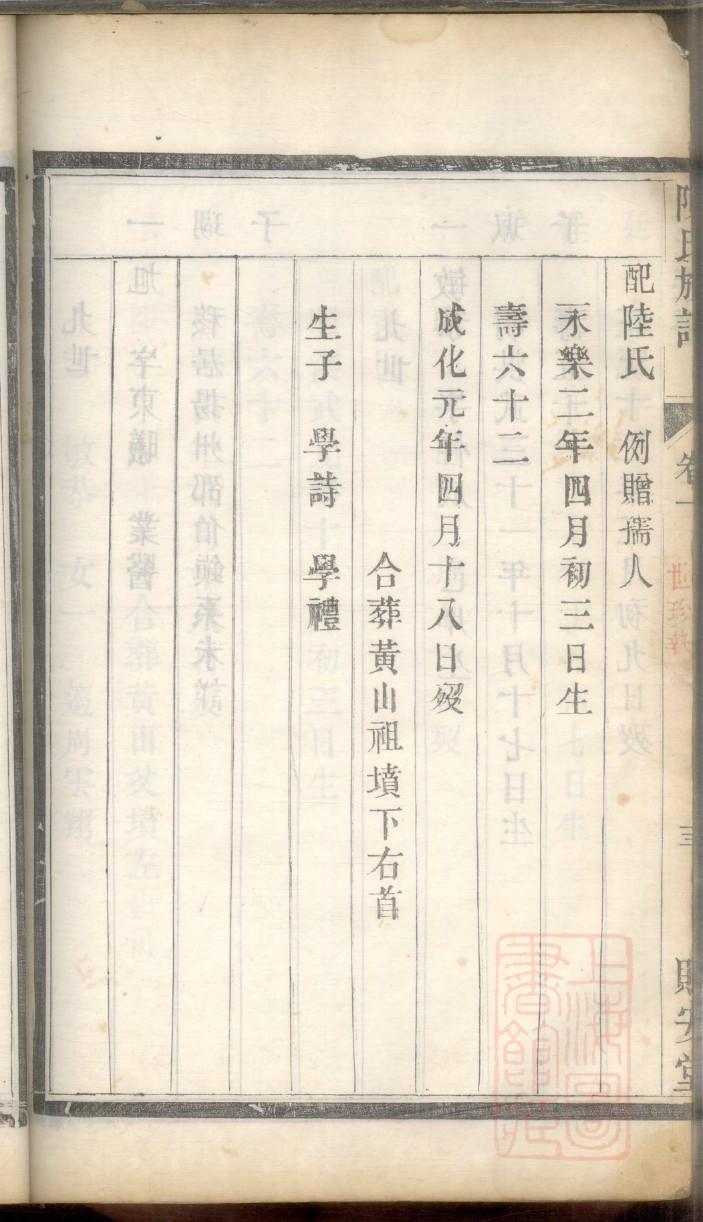 配陸氏 例贈孺人
永樂二年四月初三日生
壽六十二
成化元年四月十八日歿
合葬黃山祖墳下右首
生子 學詩 學禮
氏族譜
卷一
三
貽安堂
上海圖書館藏